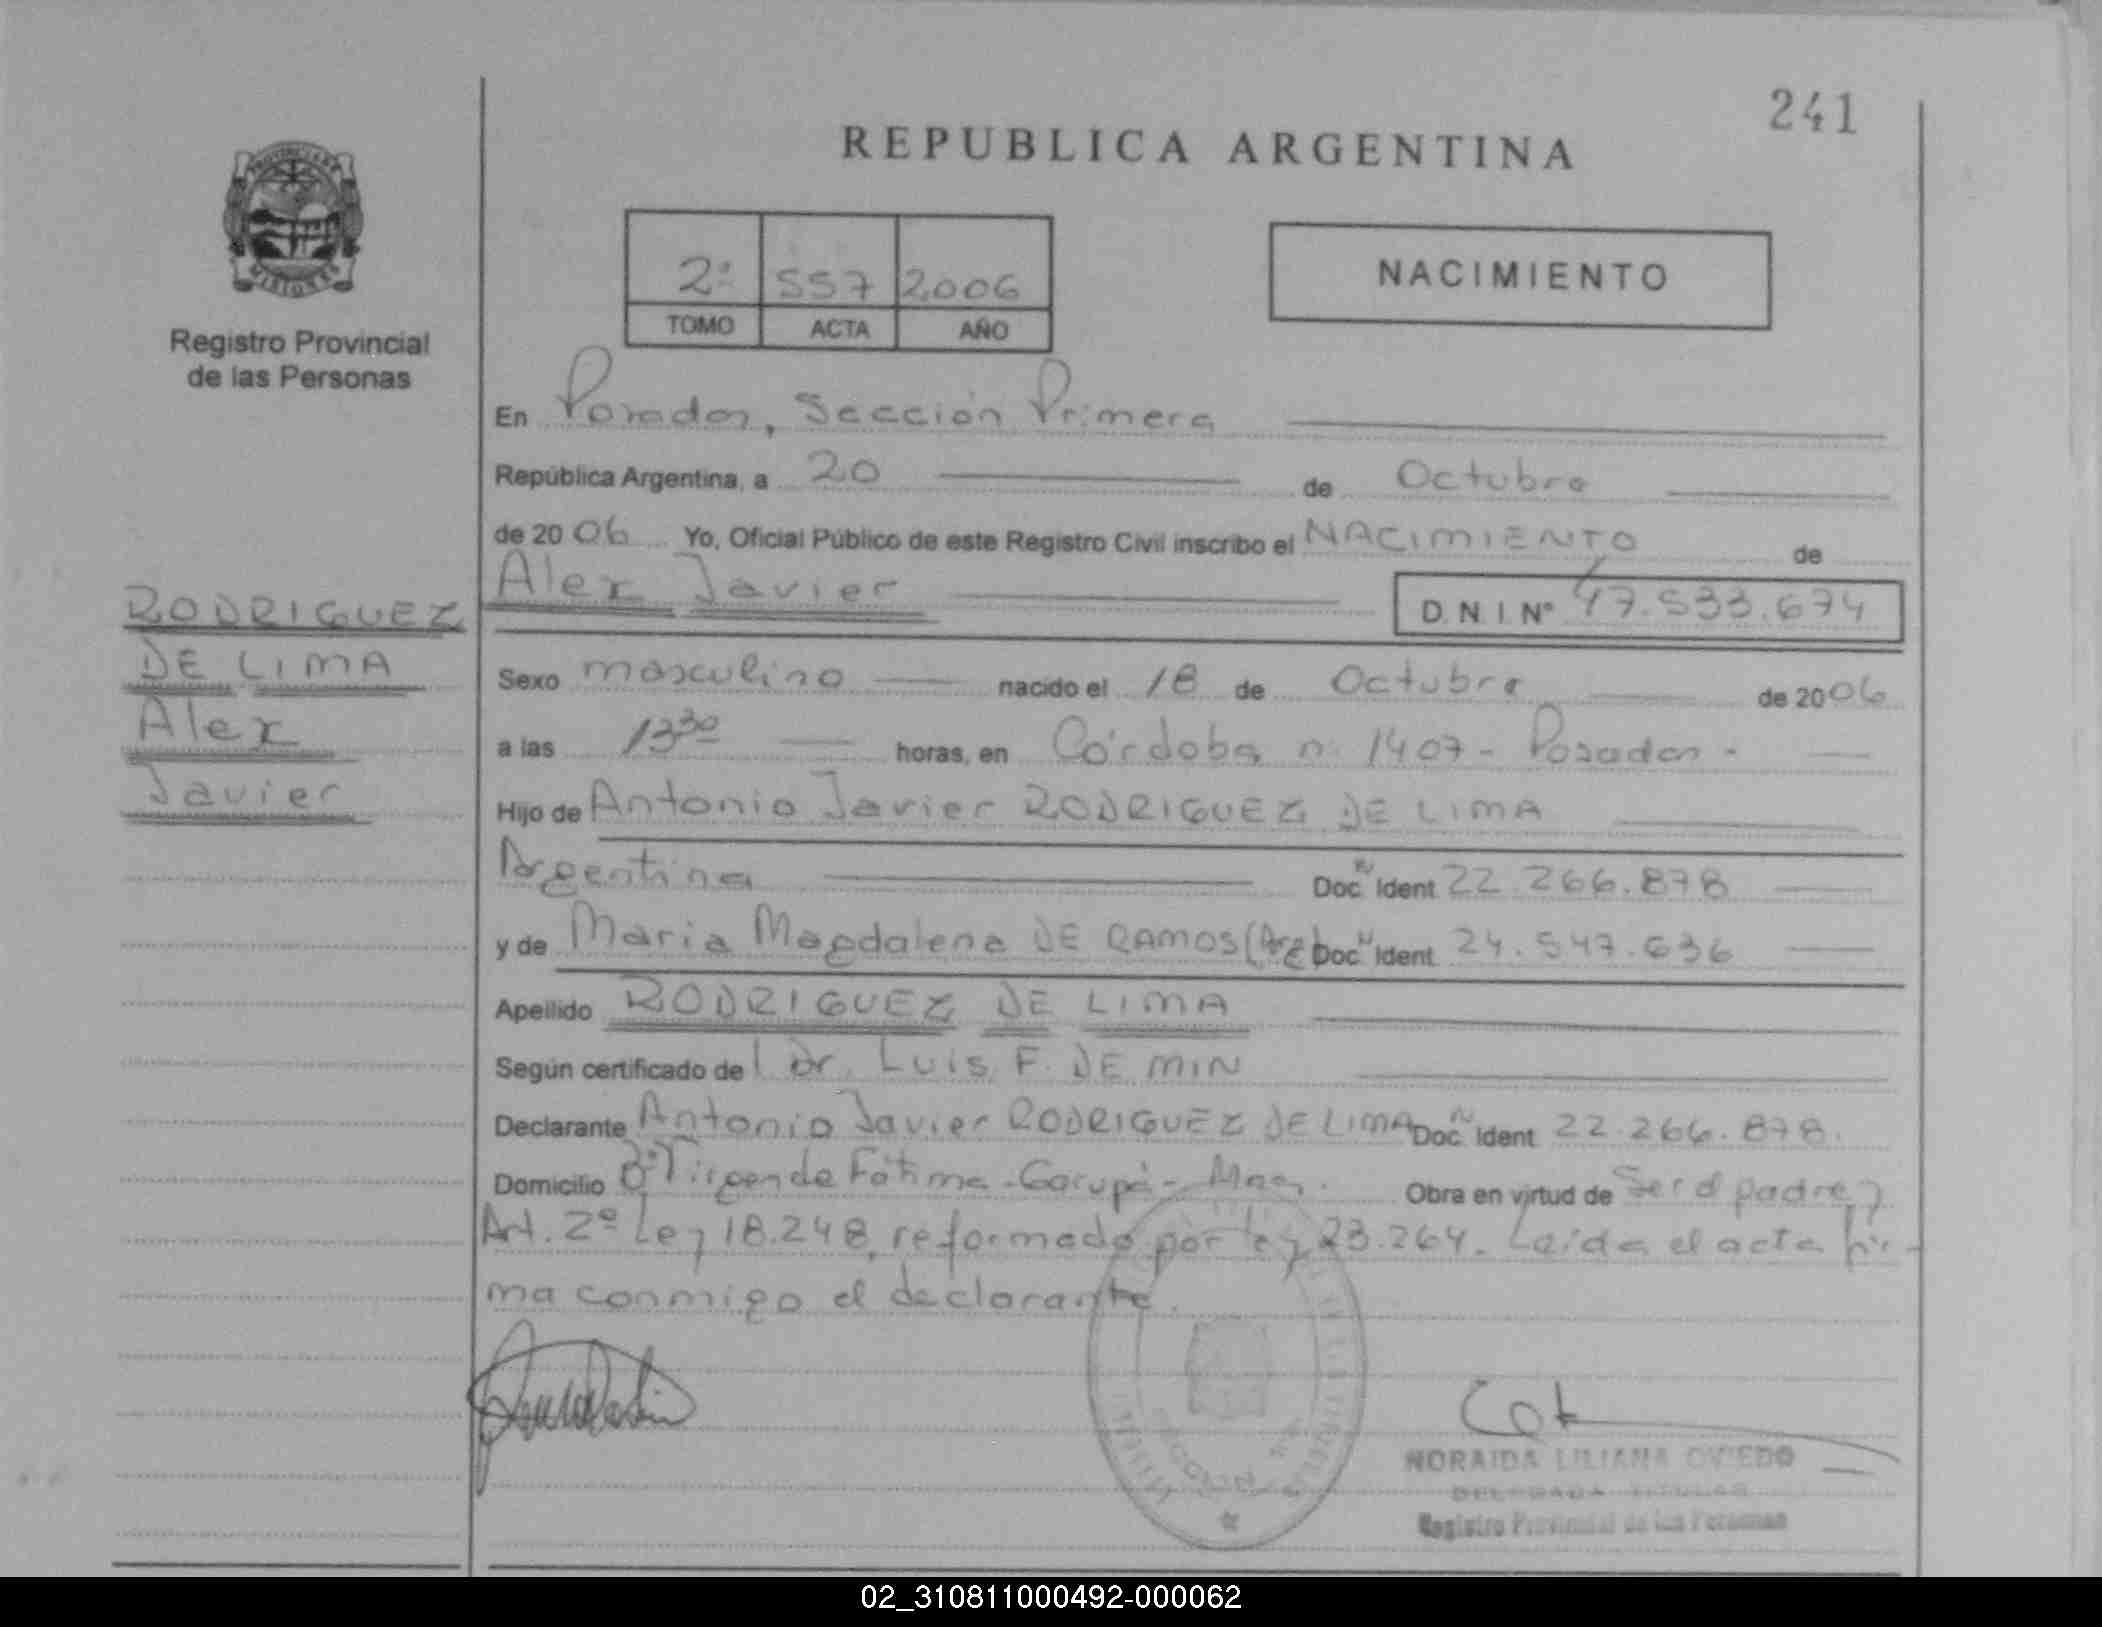 241
REPUBLICA ARGENTINA
PROVINCIA DE
MISIONES
Registro Provincial
de las Personas
2º 557 2006
TOMO ACTA AÑO
NACIMIENTO
En Posadas, Sección Primera
República Argentina, a 20 de Octubre
de 2006 Yo, Oficial Público de este Registro Civil inscribo el NACIMIENTO de
Alex Javier D.N.I. Nº 47.533.674
RODRIGUEZ
DE LIMA
Alex
Javier
Sexo masculino nacido el 18 de Octubre de 2006
a las 13 30 horas, en Córdoba nº 1407 - Posadas -
Hijo de Antonio Javier RODRIGUEZ DE LIMA
Argentina Doc. Ident 22.266.878
y de Maria Magdalena DE RAMOS (Arg) Doc. Ident. 24.547.636
Apellido RODRIGUEZ DE LIMA
Según certificado del Dr. LUIS F. DE MIN
Declarante Antonio Javier RODRIGUEZ DE LIMA Doc. Ident 22.266.878.
Domicilio Bº Virgen de Fátima - Garupá - Mnes. Obra en virtud de Ser el padre y
Art. 2º Ley 18.248, reformado por ley 23.264. Leída el acta fir-
ma conmigo el declarante.
NORAIDA LILIANA OVIEDO
DELEGADA TITULAR
Registro Provincial de las Personas
02_310811000492-000062